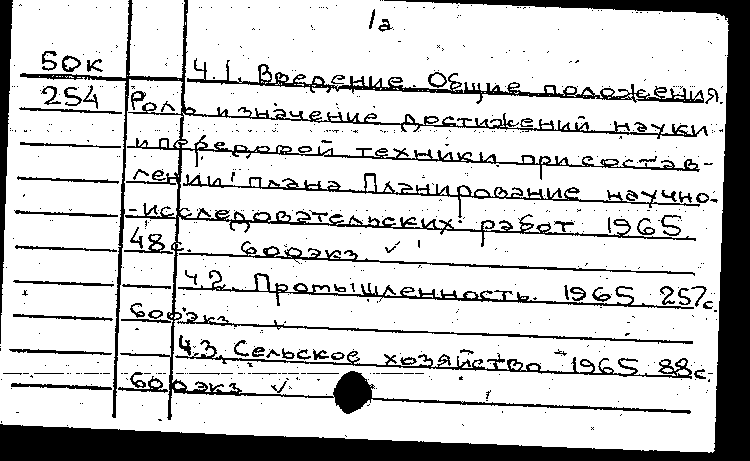 1а
БОК Ч.1. Введение. Общие положения.
254 Роль и значение достижений науки
и передовой техники при состав-
лении плана. Планирование научно-
-исследовательских работ. 1965.
48с. 600экз. ✓
Ч.2. Промышленность. 1965. 257с.
600экз. ✓
Ч.3. Сельское хозяйство 1965. 88с.
600экз ✓